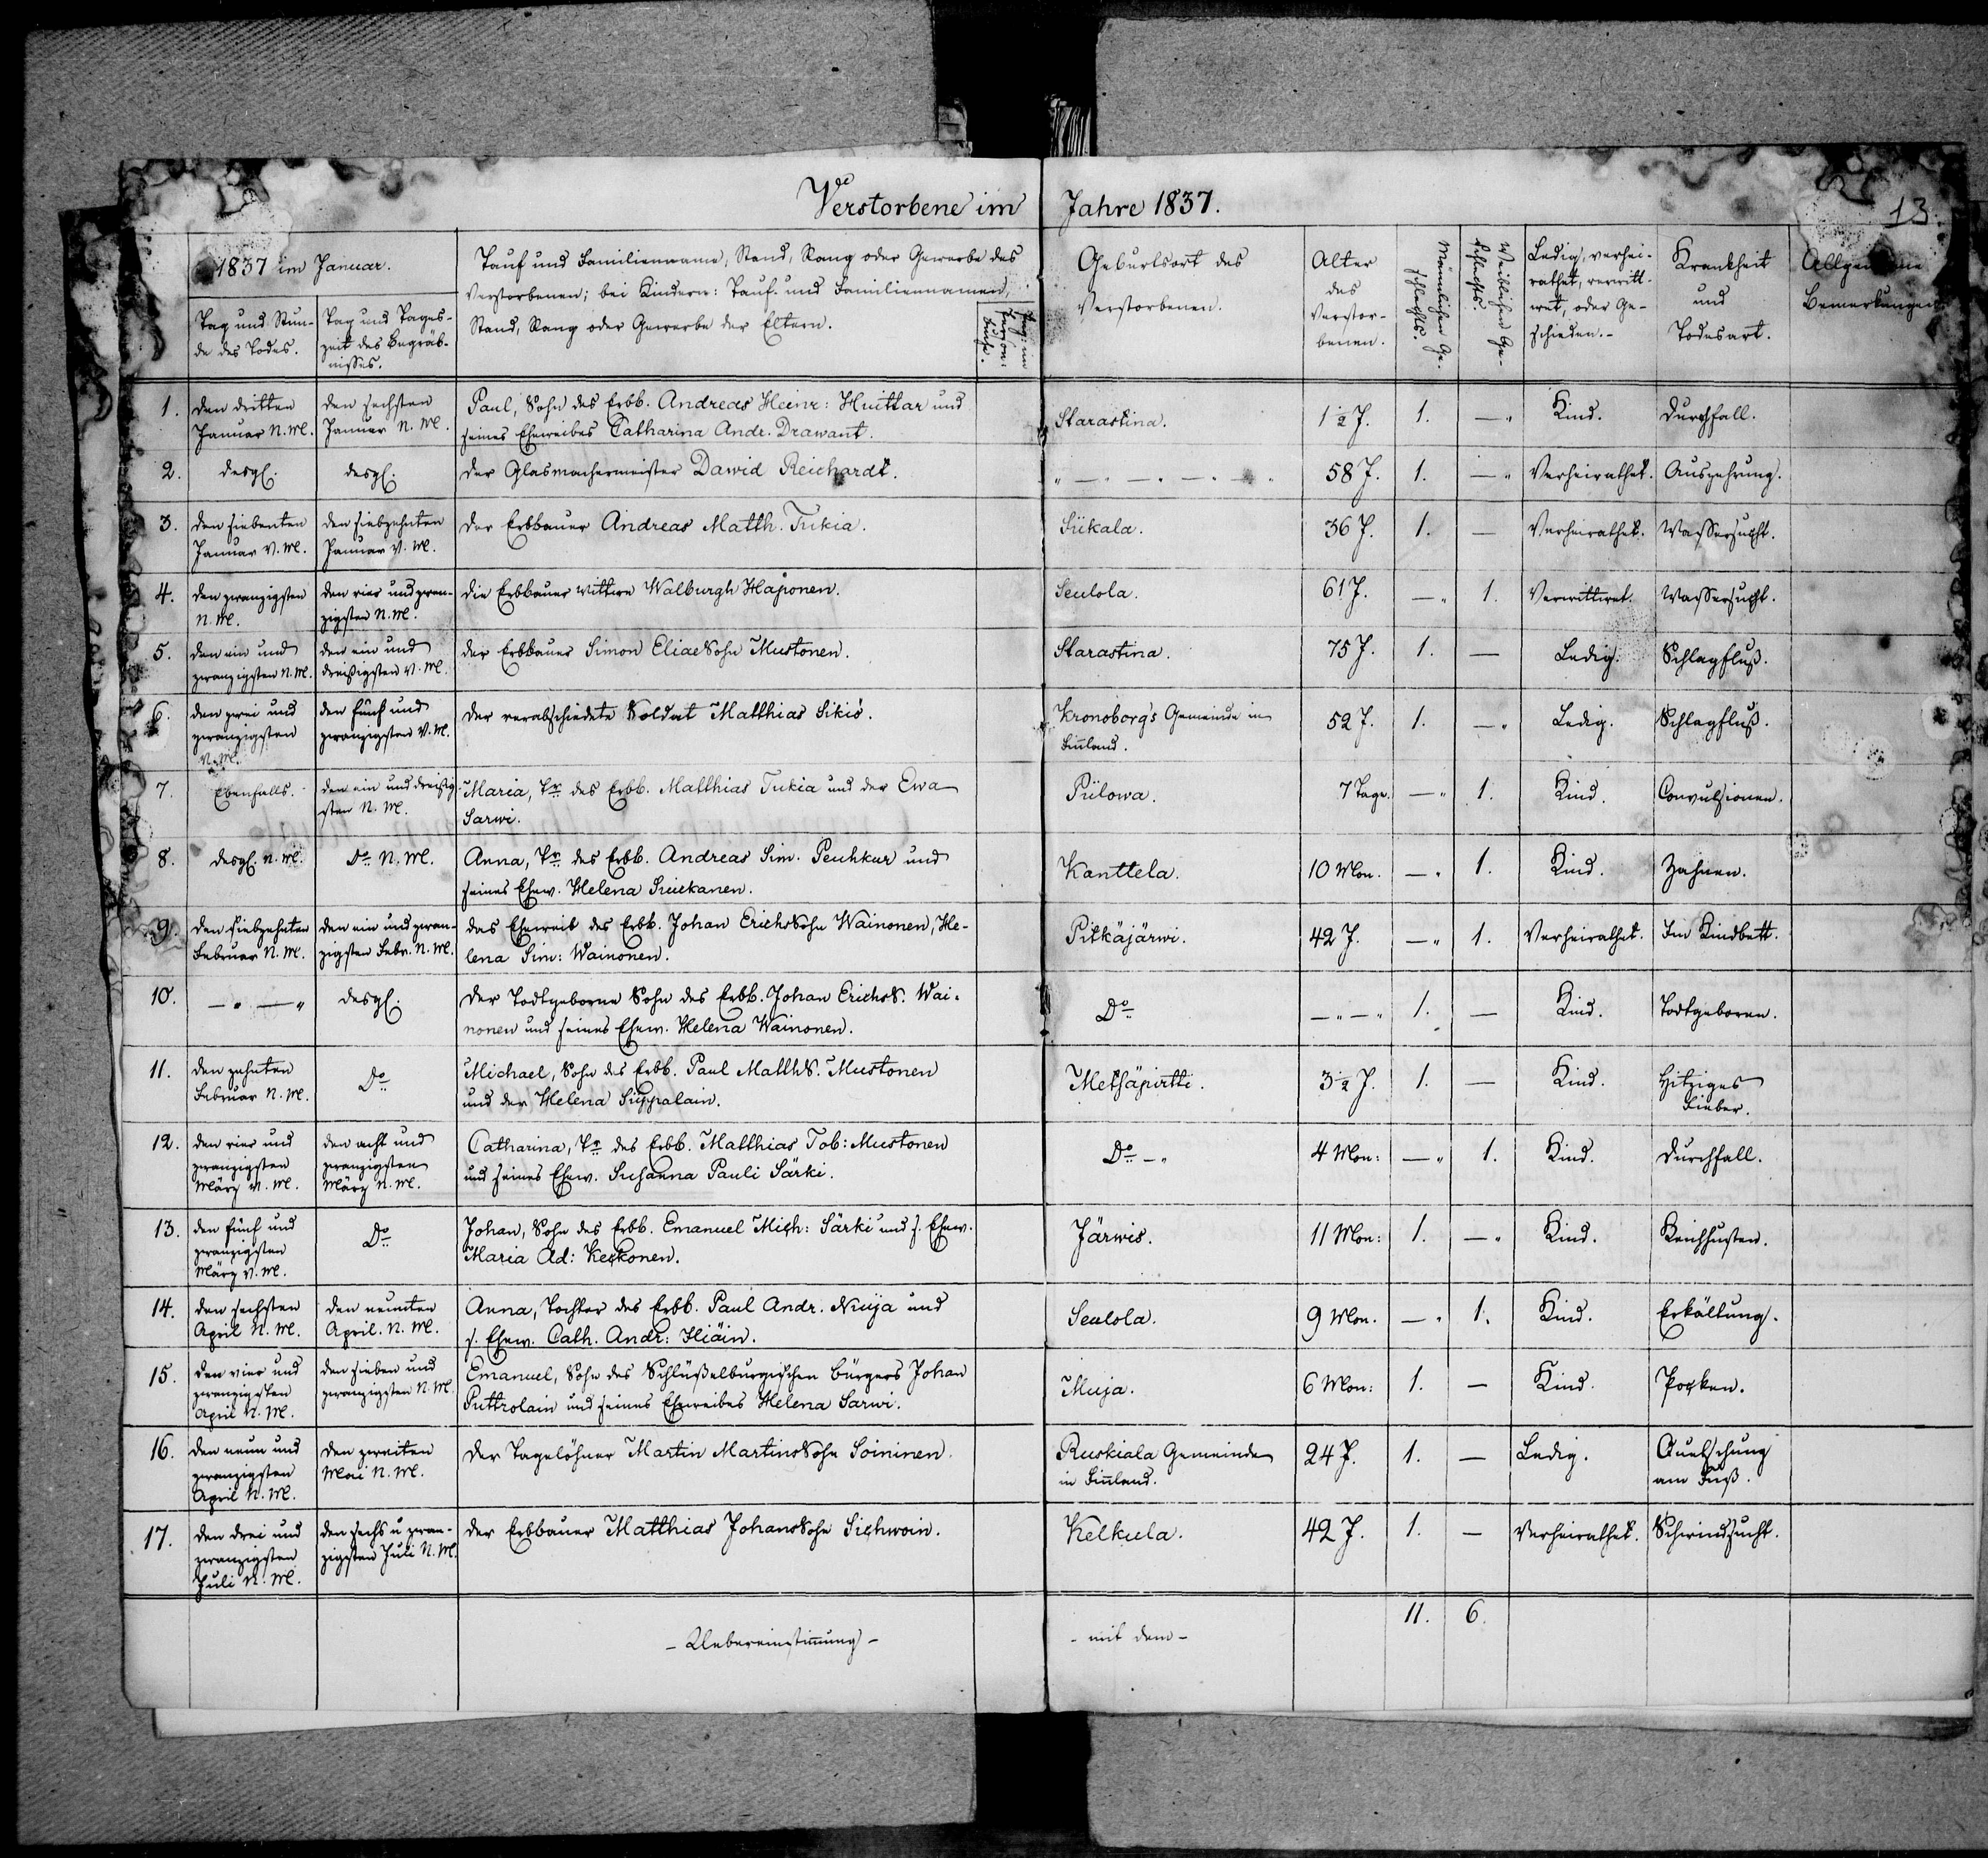 Verstorbene im Jahre 1837.
13.
1837 im Januar.
Tag und Stun-
de des Todes.
Tag und Tages-
zeit des Begräb-
nisses.
Tauf und Familienname, Stand, Rang oder Gewerbe des
Verstorbenen; bei Kindern: Tauf- und Familiennamen,
Stand, Rang oder Gewerbe der Eltern.
Geburtsort des
Verstorbenen.
Alter
des
Verstor-
benen.
Männlichen Ge-
schlechts.
Weiblichen Ge-
schlechts.
Ledig, verhei-
rathet, verwitt-
wet, oder Ge-
schieden.-
Krankheit
und
Todesart.
Allgemeine
Bemerkungen
1. den dritten Januar N. M. den sechsten Januar N. M. Paul, Sohn des Erbb. Andreas Heinr: Huittar und Starastina. 1 1/2 J. 1. — " Kind. Durchfall.
seines Eheweibes Catharina Andr. Drawant.
2. desgl. desgl. der Glasmachermeister Dawid Reichardt. " — " — " — " — " 58 J. 1. — " Verheirathet. Auszehrung.
3. den siebenten Januar V. M. den siebzehnten Januar V. M. der Erbbauer Andreas Matth. Tukia. Siikala. 36 J. 1. — Verheirathet. Wassersucht.
4. den zwanzigsten N. M. den vier und zwan-
zigsten N. M. die Erbbauer Wittwe Walburgh Haponen. Seulola. 61 J. — " 1. Verwittwet. Wassersucht.
5. den ein und zwanzigsten N. M. den ein und dreißigsten V. M. der Erbbauer Simon Eliae Sohn Mustonen. Starastina. 75 J. 1. — Ledig. Schlagfluß.
6. den zwei und zwanzigsten V. M. den fünf und zwanzigsten V. M. der verabschiedete Soldat Matthias Sikiö. Kronoborg's Gemeinde in 52 J. 1. — " Ledig. Schlagfluß.
Finland.
7. Ebenfalls. den ein und dreißig-
sten N. M. Maria, Tr des Erbb. Matthias Tukia und der Ewa Piilowa. 7 Tage. — " 1. Kind. Convulsionen.
Sarwi.
8. desgl. N. M. Do N. M. Anna, Tr des Erbb. Andreas Sim. Peuhkur und Kanttela. 10 Mon. — " 1. Kind. Zahnen.
seines Ehew. Helena
9. den siebzehnten Februar N. M. den ein und zwan-
zigsten Febr. N. M. das Eheweib des Erbb. Johan Erichs Sohn Wainonen, He- Pitkäjärwi. 42 J. — " 1. Verheirathet. Im Kindbett.
lena Sim: Wainonen.
10. — " — " desgl. der Todtgeborne Sohn des Erbb. Johan Erichs S. Wai- Do — " — " 1. — Kind. Todtgeboren.
nonen und seines Ehew. Helena Wainonen.
11. den zehnten Februar N. M. Do Michael, Sohn des Erbb. Paul Matth S. Mustonen Metsäpirtti. 3 1/2 J. 1. — Kind. Hitziges
und der Helena Suppalain. Fieber.
12. den vier und zwanzigsten März N. M. den acht und zwanzigsten März N. M. Catharina, Tr des Erbb. Matthias Tob: Mustonen Do — " 4 Mon: — " 1. Kind. Durchfall.
und seines Ehew. Susanna Pauli Särki.
13. den fünf und zwanzigsten März V. M. Do Johan, Sohn des Erbb. Emanuel Mich: Särki und s. Ehew. Järwis. 11 Mon: 1. — " Kind. Keichhusten.
Maria Ad: Keckonen.
14. den sechsten April N. M. den neunten April. N. M. Anna, Tochter des Erbb. Paul Andr. Niuja und Seulola. 9 Mon. — " 1. Kind. Erkältung.
s. Ehew. Cath. Andr: Hiäin.
15. den vier und zwanzigsten April N. M. den sieben und zwanzigsten N. M. Emanuel, Sohn des Schlüßelburgischen Bürgers Johan Muja. 6 Mon: 1. — Kind. Pocken.
Puttrolain und seines Eheweibes Helena Sarwi.
16. den neun und zwanzigsten April N. M. den zweiten Mai N. M. der Tagelöhner Martin Martins Sohn Soininen. Ruskiala Gemeinde 24 J. 1. — Ledig. Quetschung
in Finland. am Fuß.
17. den drei und zwanzigsten Juli N. M. den sechs u zwan-
zigsten Juli N. M. der Erbbauer Matthias Johans Sohn Sichwoin. Kelkula. 42 J. 1. — Verheirathet. Schwindsucht.
11. 6.
- Uebereinstimung - - mit dem -